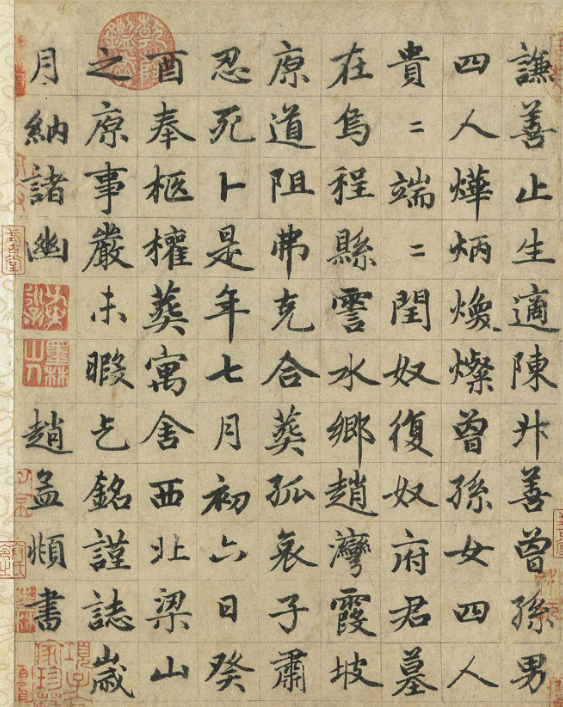 謙善止生適陳升善曾孫男
四人燁炳煥燦曾孫女四人
貴〻端〻閏奴復奴府君墓
在烏程縣霅水鄉趙灣霞坡
原道阻弗克合葬孤哀子肅
忍死卜是年七月初六日癸
酉奉柩權葬寓舍西北梁山
之原事嚴未暇乞銘謹誌歲
月納諸幽
趙孟頫書
墨林山人